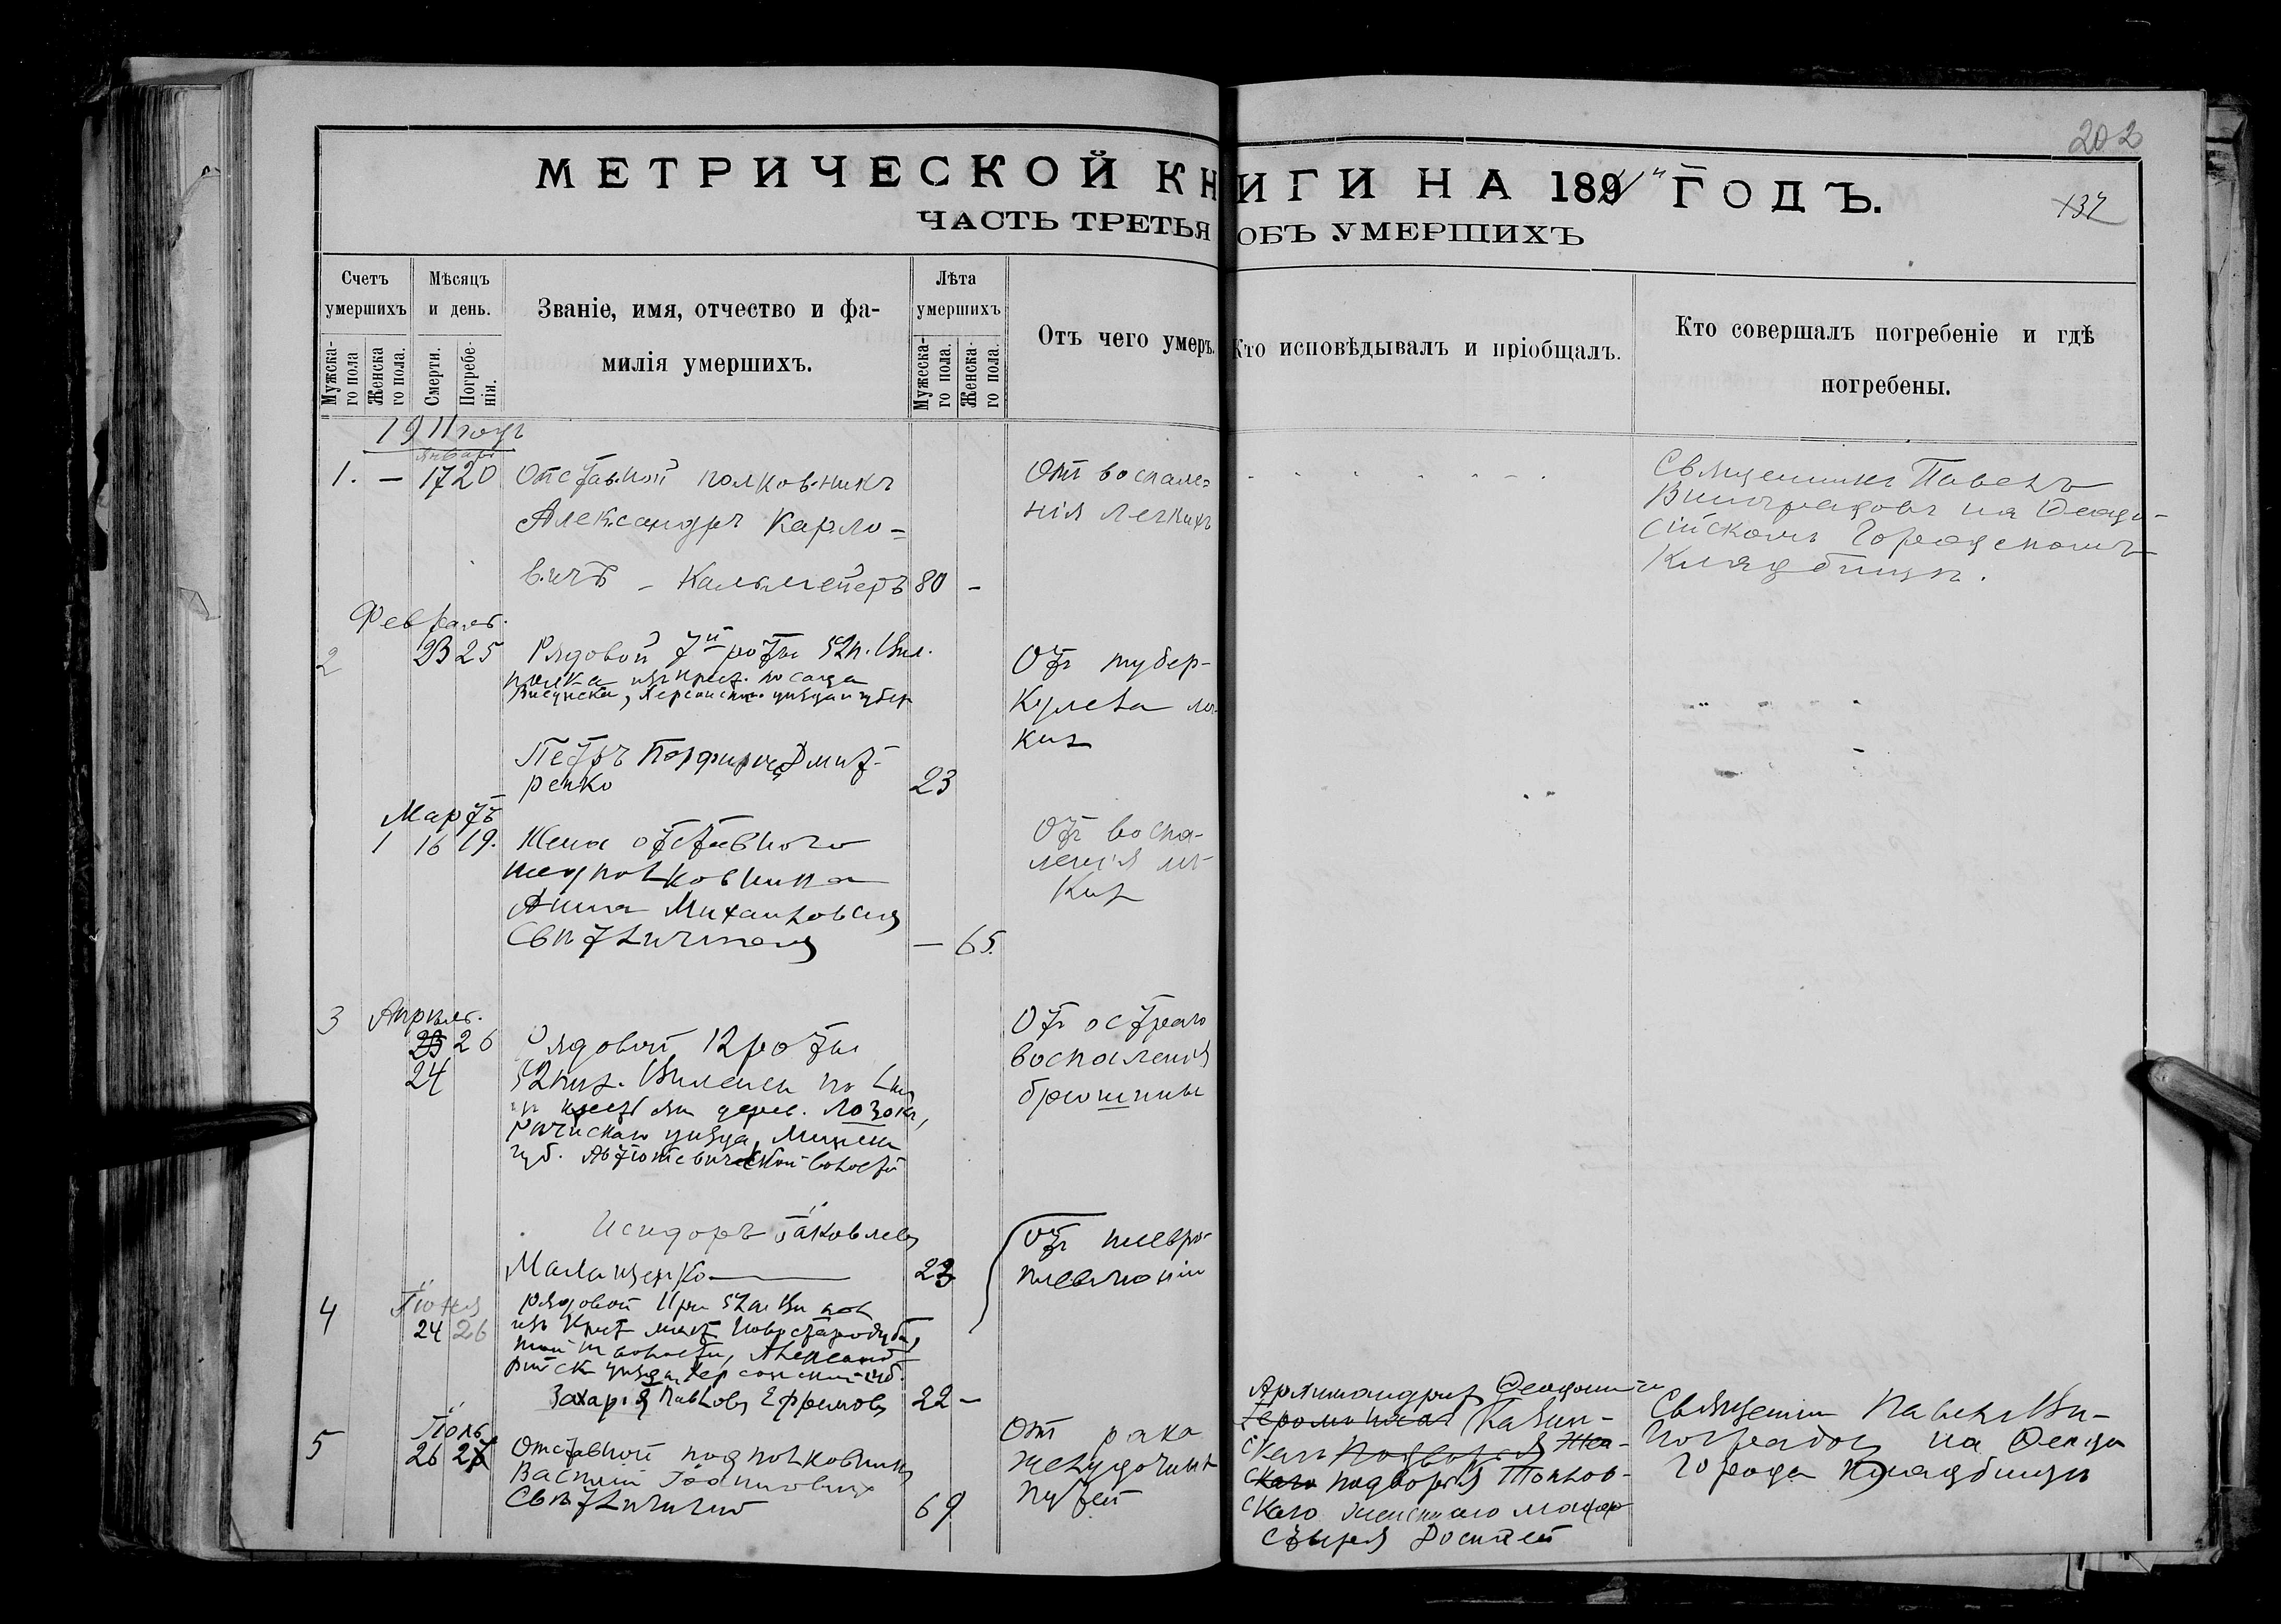 202
МЕТРИЧЕСКОЙ КНИГИ НА 189 ГОДЪ.
137
ЧАСТЬ ТРЕТЬЯ ОБЪ УМЕРШИХЪ
Счетъ умершихъ
Мужска-го пола
Женска-го пола.
Мѣсяцъ и день.
Смерти.
Погребе-нія.
Званіе, имя, отчество и фа-
милія умершихъ.
Лѣта умершихъ
Мужеска-го пола.
Женска-го пола.
Отъ чего умеръ.
Кто исповѣдывалъ и пріобщалъ.
Кто совершалъ погребеніе и гдѣ
погребены.
1911 годъ
Январь
1. — 17 20 Отставной полковникъ
Александръ Карло=
вичъ – Кальмейеръ 80 –
Отъ воспале=
нія легкихъ
Священникъ Павелъ
Виноградовъ на Ѳеодо-
сійскомъ Городскомъ
Кладбищѣ.
Февраль.
2 23 25 Рядовой 7й роты 52 п. Вил.
полка изъ посада
Висунска, Херсонск. уѣзда и губер
Петръ Порфир Дмит-
ренко 23
Отъ тубер-
кулеза ле
ких
Мартъ
1 16 19. Жена отставного
подполковника
Анна Михайловна
Свѣтличная — 65.
Отъ воспа-
ленія ле
ких
3 Апрѣль.
23 26 Рядовой 12 роты
24 52 пѣх. Виленск полка
из крестьян дерев. Лозока,
Рѣчискаго уѣзда, Минск
губ. Автютевической волости
Исидоръ Іаковлев
Маланченко 23
Отъ остраго
воспаленія
брюшины
Отъ плевро-
пневмоніи
4 Іюня
24 26 Рядовой 11 ро 52 п Ви пол
изъ Крест мест Новостародуба,
той ж волости, Александ
рійск уѣзда Херсонской губ.
Захарія Павлов Ефремов 22 –
5 Іюль
26 27 Отставной подполковник
Василій Іоанновичъ
Свѣтличный 69
Отъ рака
желудочных
путей
Архимандрит Ѳеодосій
Іеромонах Казан-
скаго Подворья Же-
скаго подворья Топлов-
скаго женскаго монас
стыря Досиѳей
Священник Павелъ Ви-
ноградов на Ѳеодо
города кладбищѣ